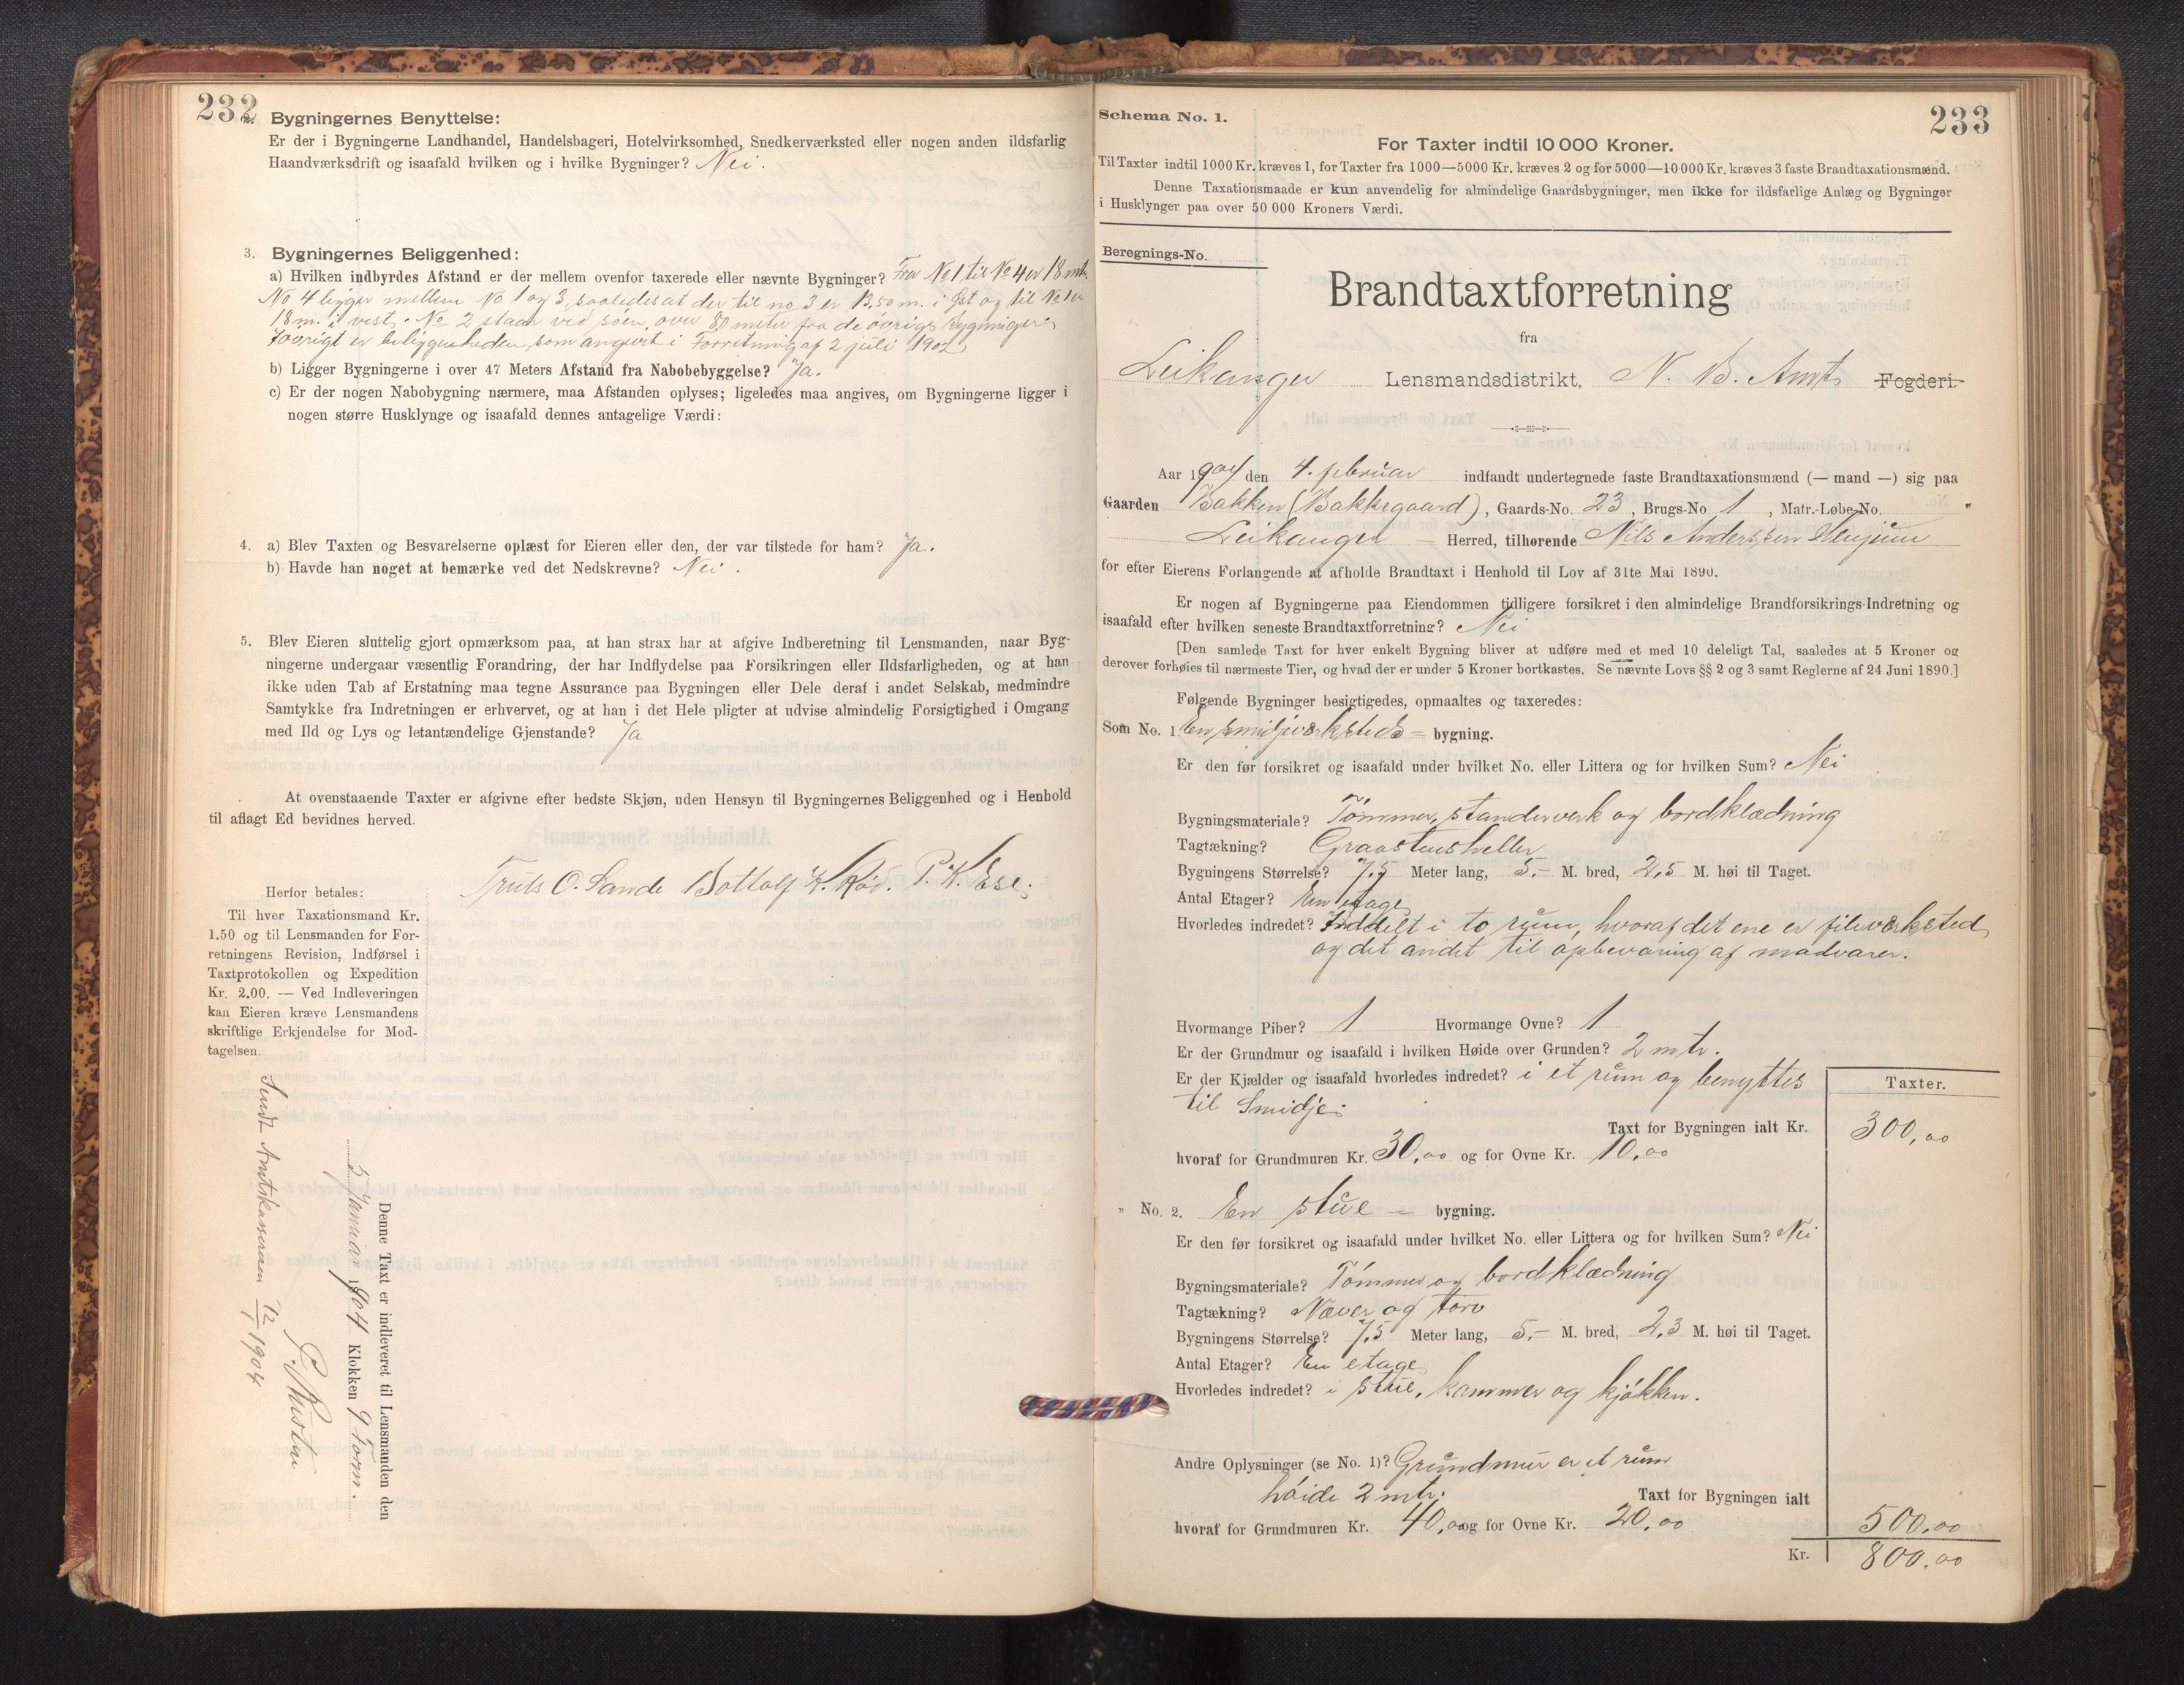 232
2. Bygningernes Benyttelse:
Er der i Bygningerne Landhandel, Handelsbageri, Hotelvirksomhed, Snedkerværksted eller nogen anden ildsfarlig
Haandværksdrift og isaafald hvilken og i hvilke Bygninger? Nei.
3. Bygningernes Beliggenhed:
a) Hvilken indbyrdes Afstand er der mellem ovenfor taxerede eller nævnte Bygninger? Fra No 1 til No 4 er 18 mtr.
No 4 ligger mellem No 1 og 3, saaledes at der til no 3 er 13,50 m. i Øst og til No 1 er
18 m. i vest. No 2 staar ved søen, over 80 meter fra de øvrige bygninger.
Iøvrigt er beliggenheden som angivet i Forretning af 2 juli 1902
b) Ligger Bygningerne i over 47 Meters Afstand fra Nabobebyggelse? Ja.
c) Er der nogen Nabobygning nærmere, maa Afstanden oplyses; ligeledes maa angives, om Bygningerne ligger i
nogen større Husklynge og isaafald dennes antagelige Værdi:
4. a) Blev Taxten og Besvarelserne oplæst for Eieren eller den, der var tilstede for ham? Ja.
b) Havde han noget at bemærke ved det Nedskrevne? Nei.
5. Blev Eieren sluttelig gjort opmærksom paa, at han strax har at afgive Indberetning til Lensmanden, naar Byg-
ningerne undergaar væsentlig Forandring, der har Indflydelse paa Forsikringen eller Ildsfarligheden, og at han
ikke uden Tab af Erstatning maa tegne Assurance paa Bygningen eller Dele deraf i andet Selskab, medmindre
Samtykke fra Indretningen er erhvervet, og at han i det Hele pligter at udvise almindelig Forsigtighed i Omgang
med Ild og Lys og letantændelige Gjenstande? Ja
At ovenstaaende Taxter er afgivne efter bedste Skjøn, uden Hensyn til Bygningernes Beliggenhed og i Henhold
til aflagt Ed bevidnes herved.
Truls O. Sande Bottolf K. P. K. Ese.
Herfor betales:
Til hver Taxationsmand Kr.
1.50 og til Lensmanden for For-
retningens Revision, Indførsel i
Taxtprotokollen og Expedition
Kr. 2.00. — Ved Indleveringen
kan Eieren kræve Lensmandens
skriftlige Erkjendelse for Mod-
tagelsen.
Denne Taxt er indleveret til Lensmanden den
5 Januar 1904 Klokken 9 Form.
Sendt Amtskassereren 12/1 1904
233
Schema No. 1.
For Taxter indtil 10 000 Kroner.
Til Taxter indtil 1000 Kr. kræves 1, for Taxter fra 1000—5000 Kr. kræves 2 og for 5000—10 000 Kr. kræves 3 faste Brandtaxationsmænd.
Denne Taxationsmaade er kun anvendelig for almindelige Gaardsbygninger, men ikke for ildsfarlige Anlæg og Bygninger
i Husklynger paa over 50 000 Kroners Værdi.
Beregnings-No.
Brandtaxtforretning
fra
Leikanger Lensmandsdistrikt, N. B. Amt Fogderi.
Aar 1904 den 4. februar indfandt undertegnede faste Brandtaxationsmænd (— mand —) sig paa
Gaarden Bakken (Bakkegaard), Gaards-No. 23, Brugs-No. 1, Matr.-Løbe-No.
Leikanger Herred, tilhørende Nils Anderssen Henjum
for efter Eierens Forlangende at afholde Brandtaxt i Henhold til Lov af 31te Mai 1890.
Er nogen af Bygningerne paa Eiendommen tidligere forsikret i den almindelige Brandforsikrings-Indretning og
isaafald efter hvilken seneste Brandtaxtforretning? Nei
[Den samlede Taxt for hver enkelt Bygning bliver at udføre med et med 10 deleligt Tal, saaledes at 5 Kroner og
derover forhøies til nærmeste Tier, og hvad der er under 5 Kroner bortkastes. Se nævnte Lovs §§ 2 og 3 samt Reglerne af 24 Juni 1890.]
Følgende Bygninger besigtigedes, opmaaltes og taxeredes:
Som No. 1. En smidjeværksteds- bygning.
Er den før forsikret og isaafald under hvilket No. eller Littera og for hvilken Sum? Nei
Bygningsmateriale? Tømmer, standerverk og bordklædning
Tagtækning? Graastensheller
Bygningens Størrelse? 7,5 Meter lang, 5.- M. bred, 2,5 M. høi til Taget.
Antal Etager? En etage
Hvorledes indredet? Inddelt i to rum, hvoraf det ene er fileværksted
og det andet til opbevaring af madvarer.
Hvormange Piber? 1 Hvormange Ovne? 1
Er der Grundmur og isaafald i hvilken Høide over Grunden? 2 mtr.
Er der Kjælder og isaafald hvorledes indredet? i et rum og benyttes
til Smidje.
Taxter.
Taxt for Bygningen ialt Kr. 300,00
hvoraf for Grundmuren Kr. 30,00 og for Ovne Kr. 10,00
" No. 2. En stue - bygning.
Er den før forsikret og isaafald under hvilket No. eller Littera og for hvilken Sum? Nei
Bygningsmateriale? Tømmer og bordklædning
Tagtækning? Næver og torv
Bygningens Størrelse? 7,5 Meter lang, 5.- M. bred, 2,3 M. høi til Taget.
Antal Etager? En etage
Hvorledes indredet? i stue, kammer og kjøkken.
Andre Oplysninger (se No. 1)? Grundmur er et rum
høide 2 mtr.
Taxt for Bygningen ialt
hvoraf for Grundmuren Kr. 40,00 og for Ovne Kr. 20,00 500,00
Kr. 800.00